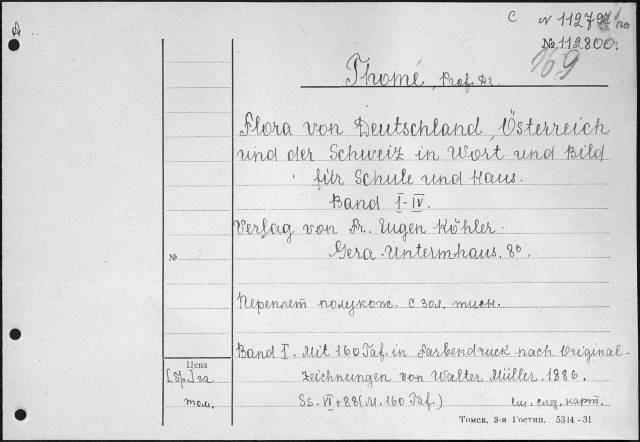 С № 112797 по
№ 112800.
169
Thomé, Prof. Dr.
Flora von Deutschland, Österreich
und der Schweiz in Wort und Bild
für Schule und Haus.
Band I-IV.
Verlag von Fr. Eugen Köhler.
Gera-Untermhaus. 8°.
№
Переплет полукож. с зол. тисн.
Band I. Mit 160 Taf. in Farbendruck nach Original-
Цена
zeichnungen von Walter Müller. 1886.
[бр.] за
том.
Ss. VI + 88 (М. 160 Taf.) см. след. карт.
Томск, 3-я Гостип. 5314-31